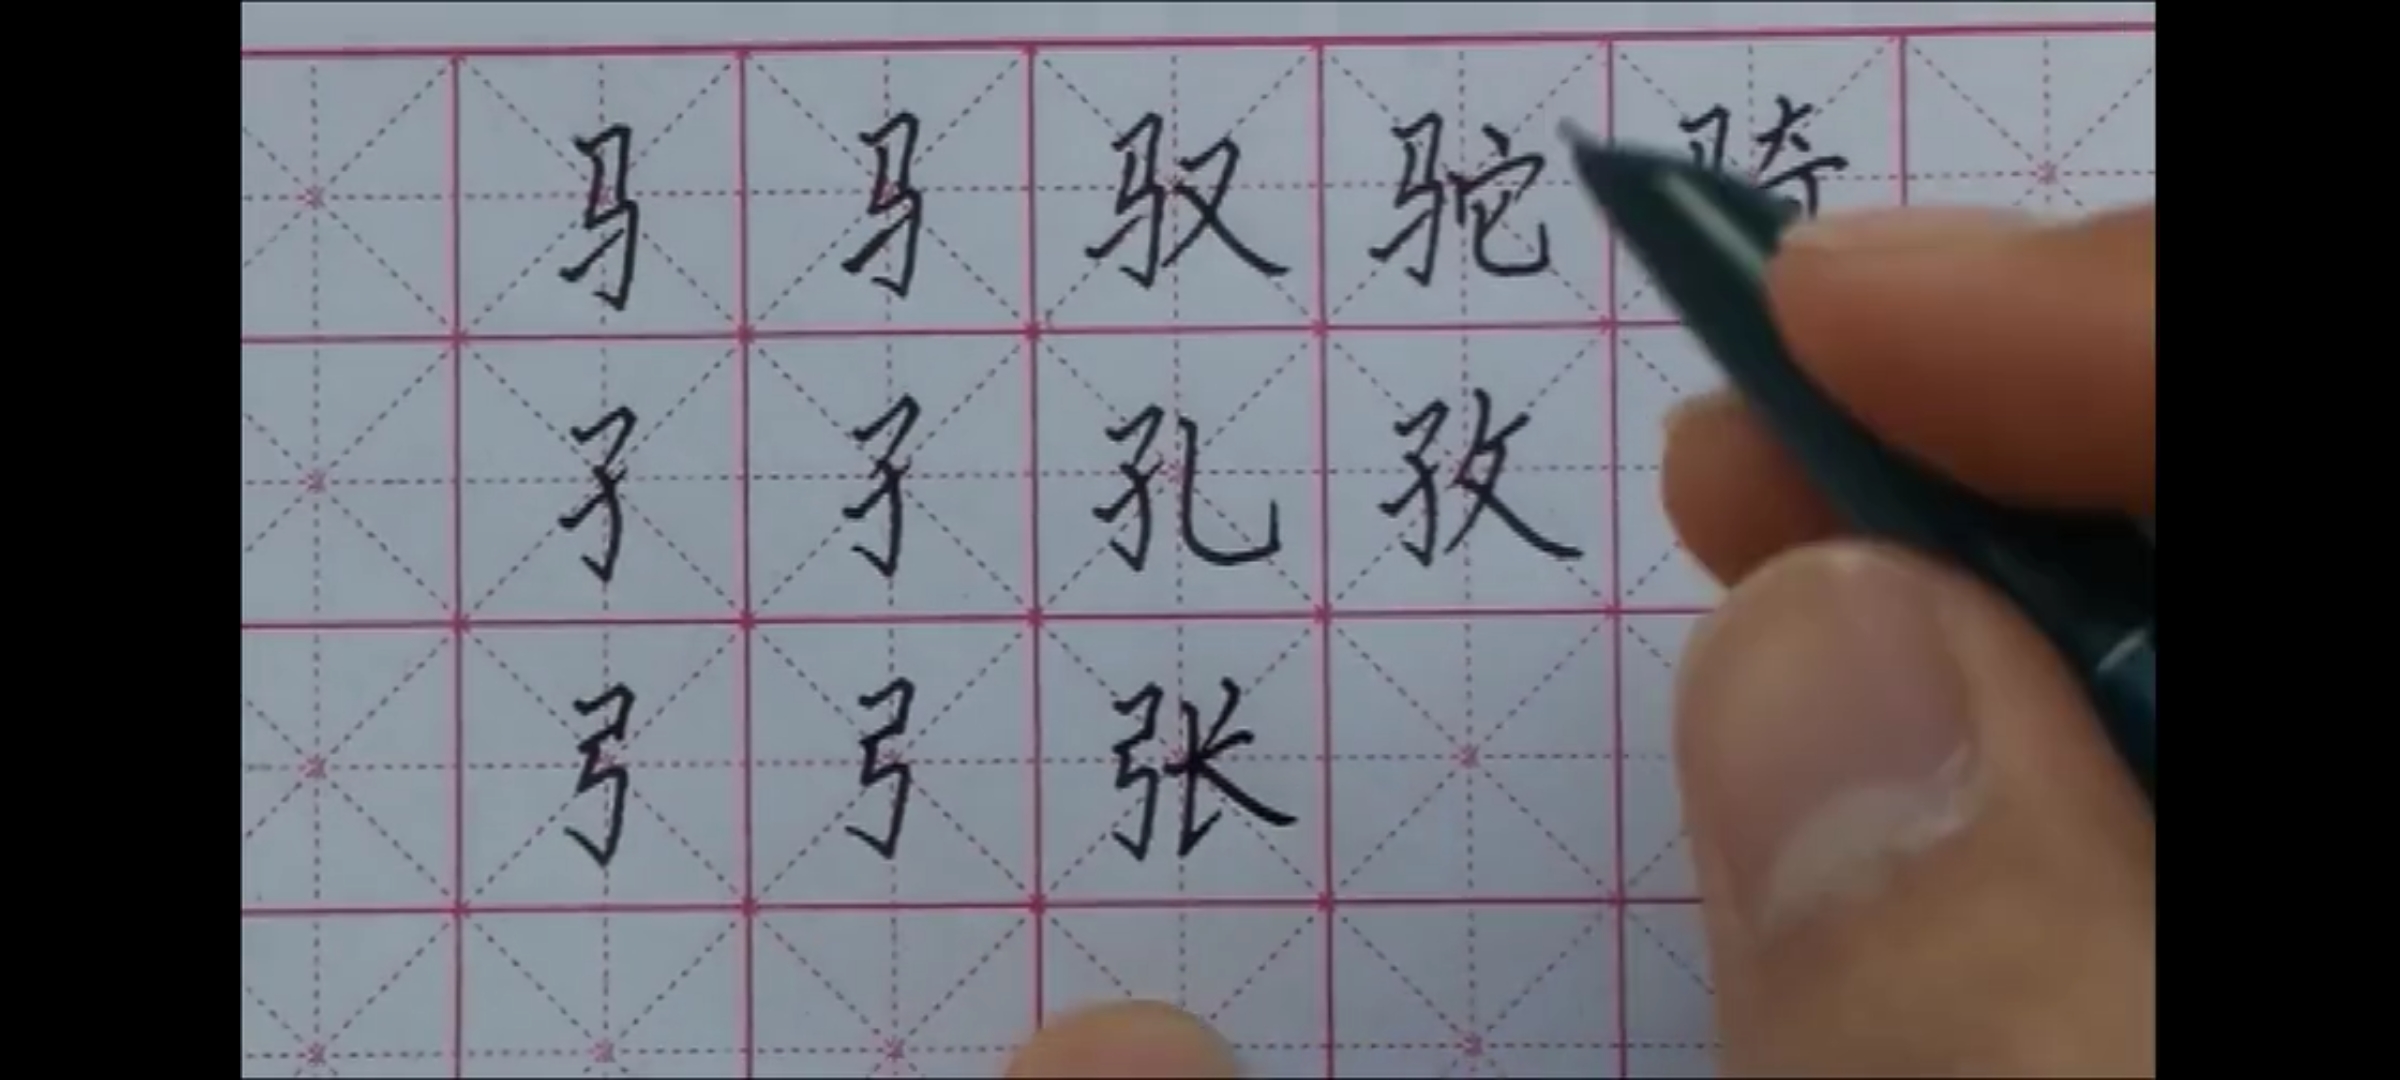 马 马 驭 驼 骑
孑 孑 孔 孜
弓 弓 张